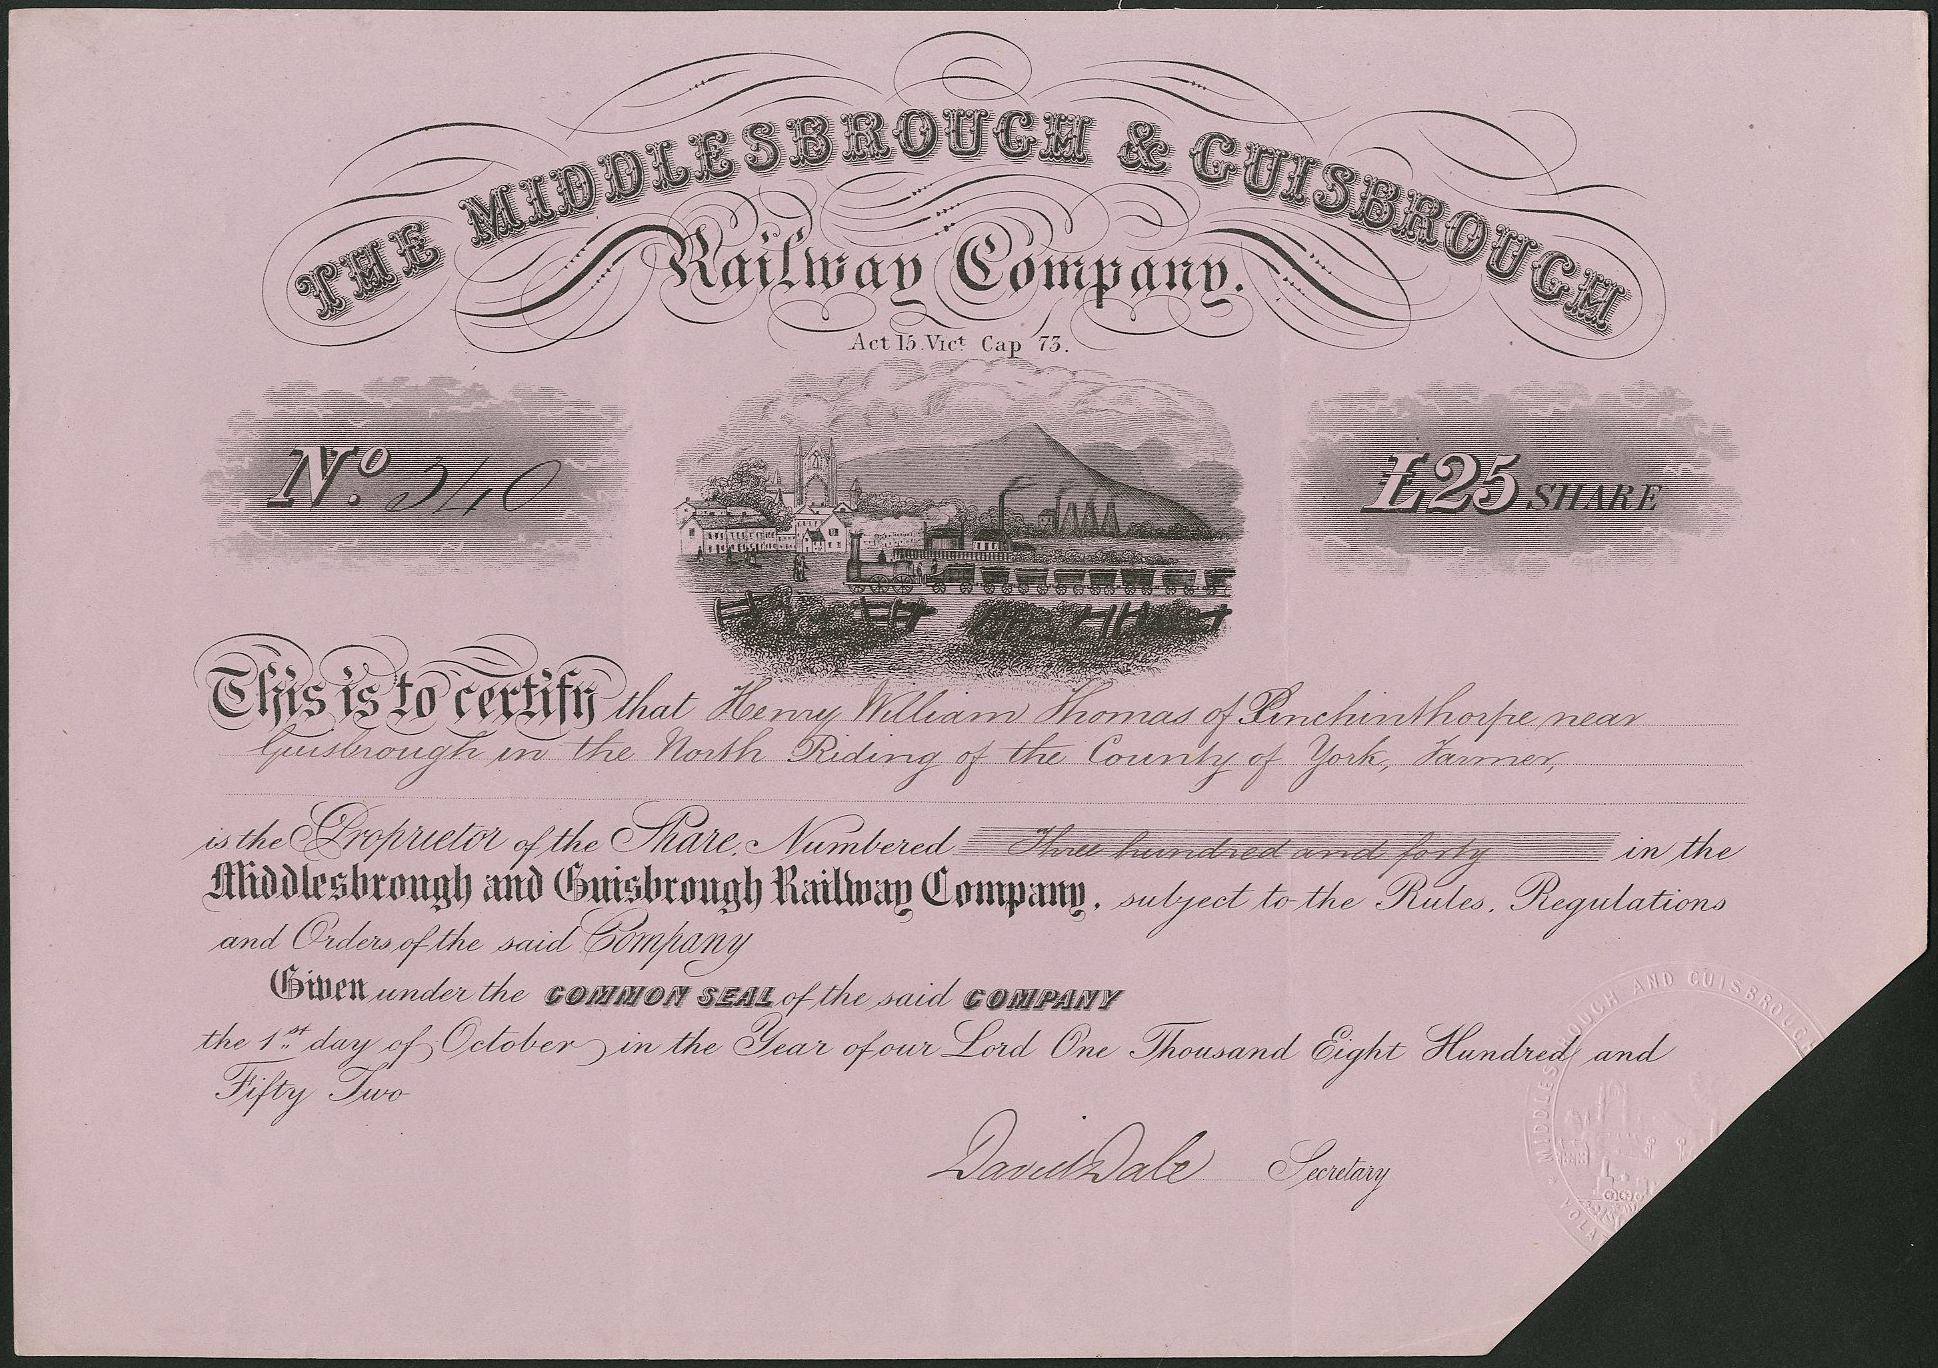 THE MIDDLESBROUGH & GUISBROUGH
Railway Company.
Act 15 Vict. Cap 73.
No. 340
£25 SHARE
This is to certify that Henry William Thomas of Pinchinthorpe near
Guisbrough in the North Riding of the County of York, Farmer,
is the Proprietor of the Share, Numbered Three hundred and forty in the
Middlesbrough and Guisbrough Railway Company, subject to the Rules, Regulations
and Orders of the said Company
Given under the COMMON SEAL of the said COMPANY
the 1st day of October in the Year of our Lord One Thousand Eight Hundred and
Fifty Two
David Dale Secretary
MIDDLESBROUGH AND GUISBROUGH